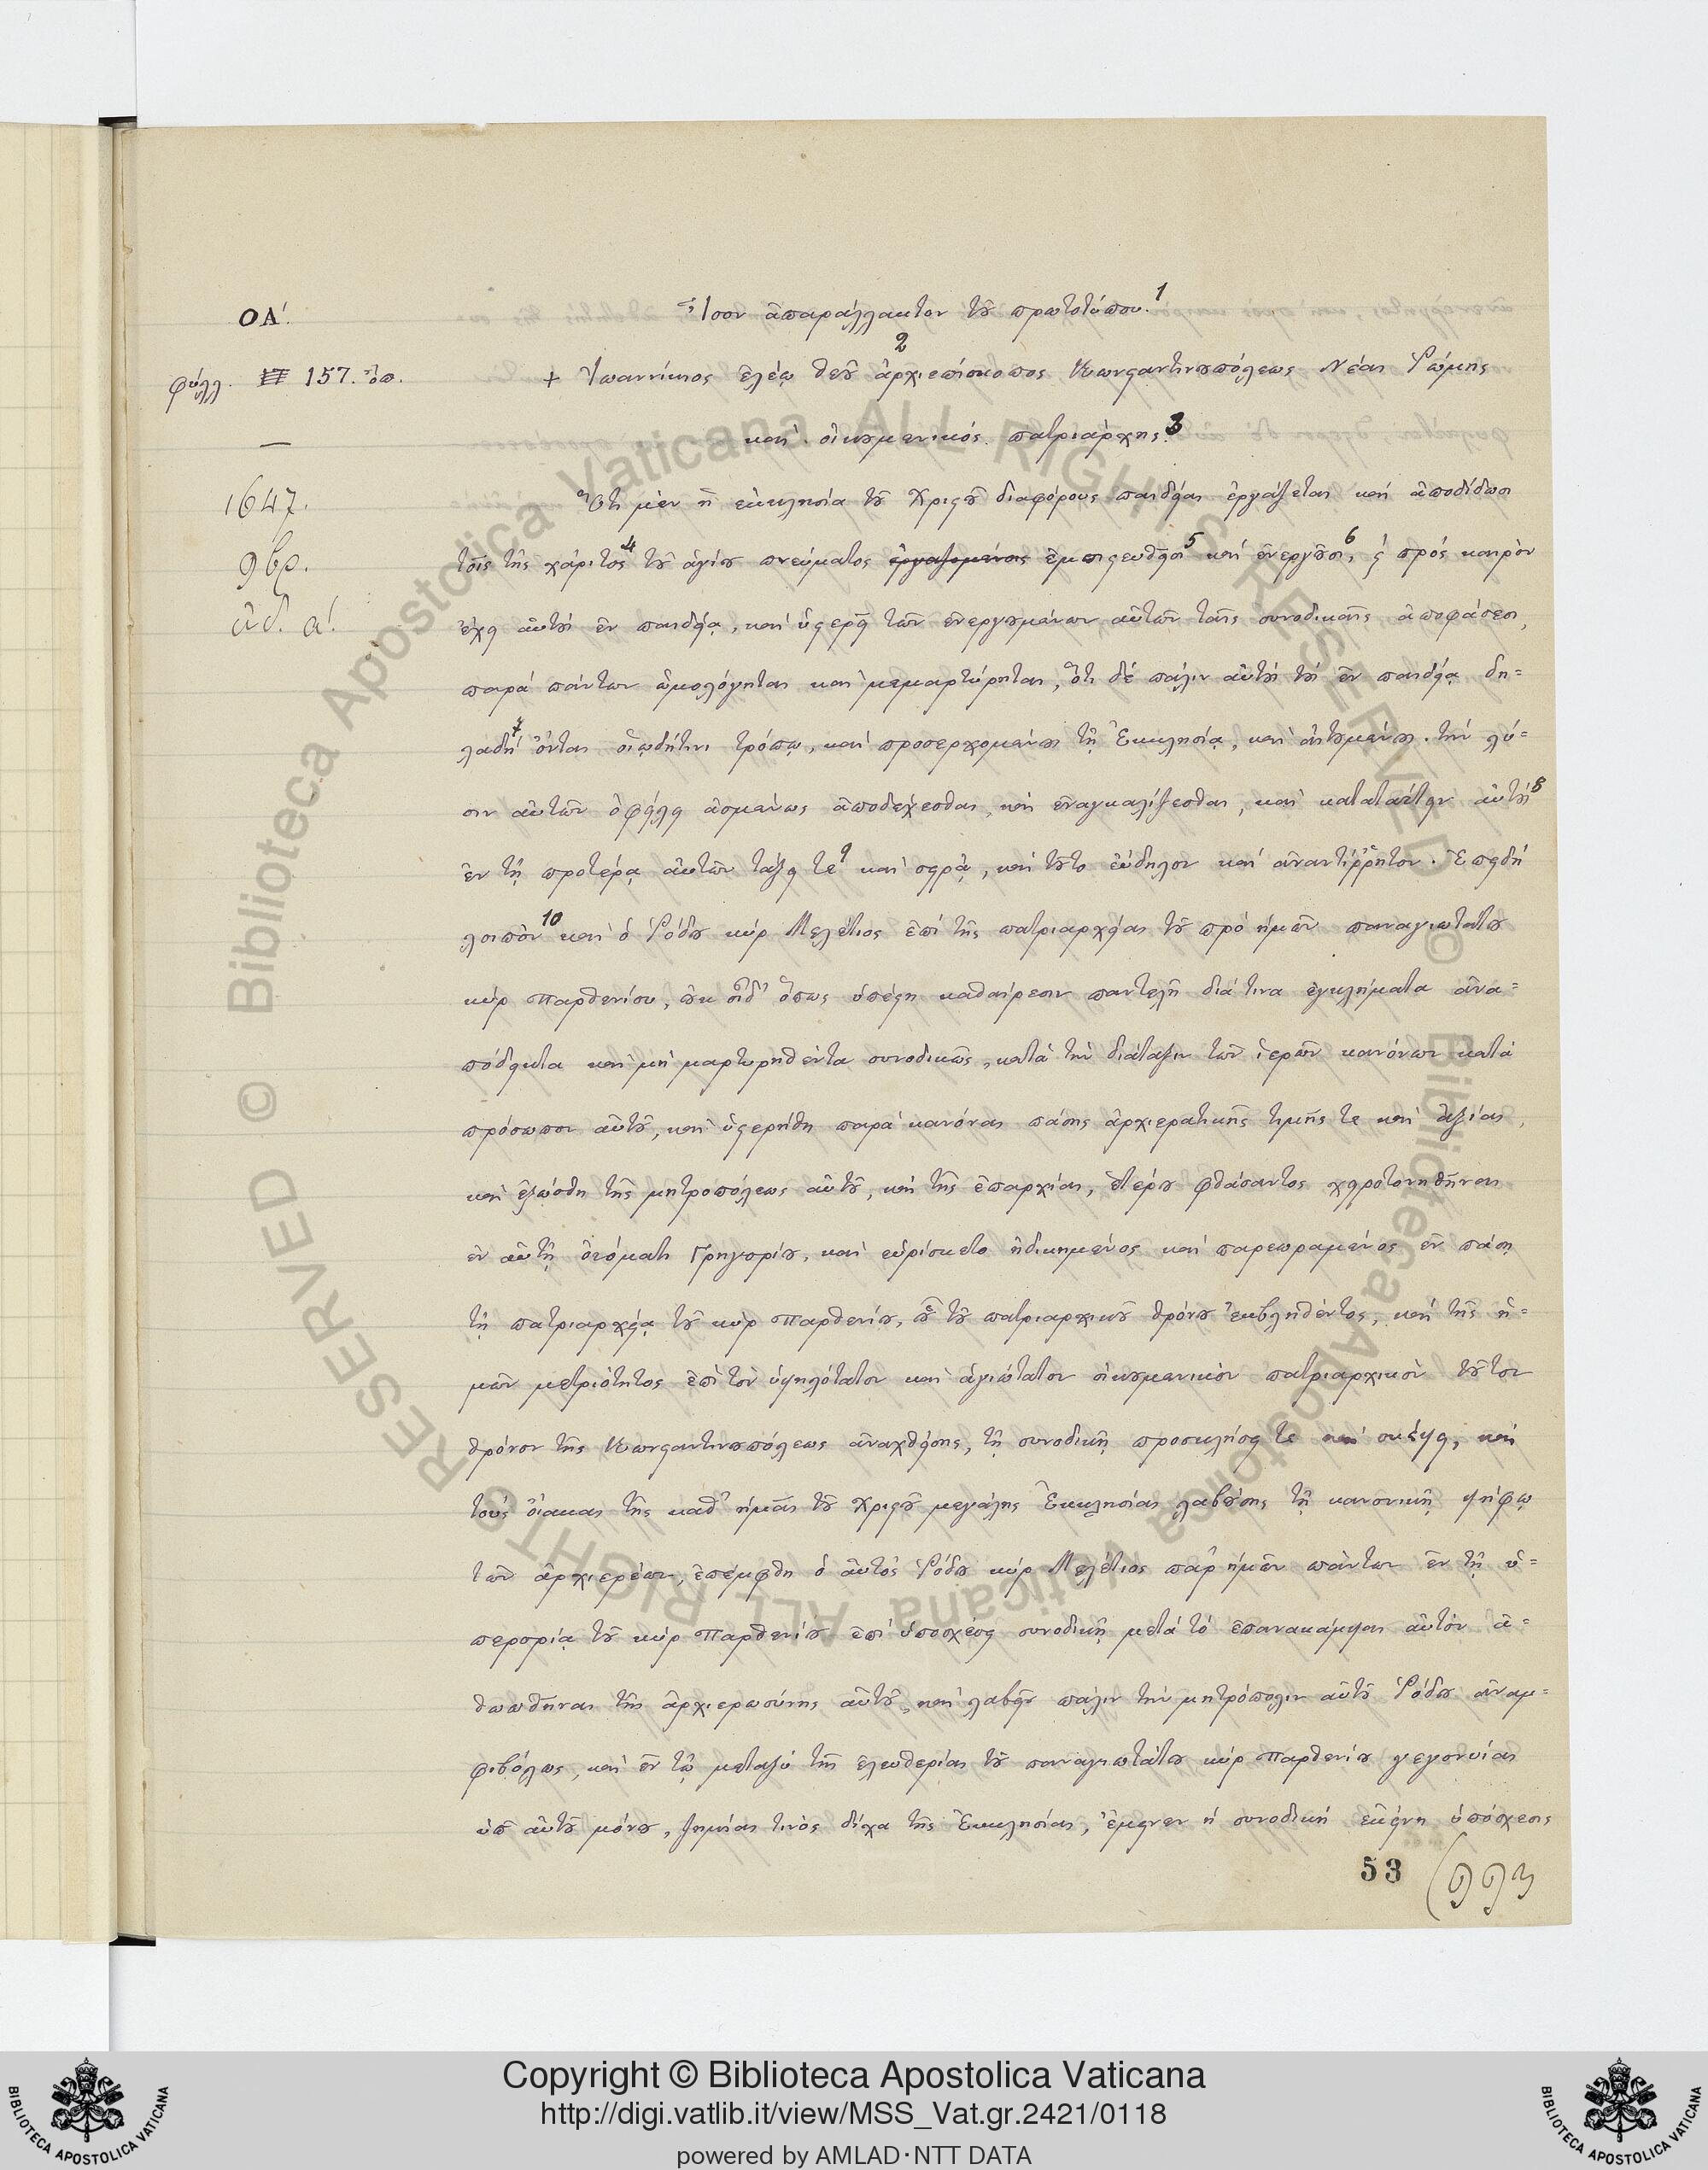 ΟΑ΄.
Ἴσον ἀπαράλλακτον τοῦ πρωτοτύπου.1
2
φύλλ. 157. ὄπ.
+ Ἰωαννίκιος ἐλέῳ θεοῦ ἀρχιεπίσκοπος Κωνσταντινουπόλεως Νέας Ῥώμης
καὶ οἰκουμενικός πατριάρχης.3
1647.
9βρ.
ἰνδ. α΄.
Ὅτι μὲν ἡ ἐκκλησία τοῦ Χριστοῦ διαφόρους παιδείας ἐργάζεται καὶ ἀποδίδωσι
τοῖς τῆς χάριτος4 τοῦ ἁγίου πνεύματος ἐργαζομένοις ἐμπιστευθεῖσι5 καὶ ἐνεργοῦσι6, ϛ πρός καιρὸν
ἔχει αὐτούς ἐν παιδείᾳ, καὶ ὑστερεῖ τῶν ἐνεργουμένων αὐτῶν ταῖς συνοδικαῖς ἀποφάσεσι,
παρά πάντων ὡμολόγηται καὶ μεμαρτύρηται, ὅτι δέ πάλιν αὐτούς τούς ἐν παιδείᾳ δη=
λαδή7 ὄντας οἱῳδήτινι τρόπῳ, καί προσερχομένους τῇ Ἐκκλησίᾳ, καὶ αἰτουμένους τήν λύ=
σιν αὐτῶν ὀφείλει ἀσμένως ἀποδέχεσθαι, καί ἐναγκαλίζεσθαι, καί κατατάττειν αὐτούς8
ἐν τῇ προτέρᾳ αὐτῶν τάξει τε9 καί σειρᾷ, καί τοῦτο εὔδηλον καί ἀναντίῤῥητον. Ἐπειδή
λοιπὸν10 καί ὁ Ῥόδου κύρ Μελέτιος ἐπί τῆς πατριαρχείας τοῦ πρό ἡμῶν παναγιωτάτου
κύρ Παρθενίου, οὐκ οἶδ' ὅπως ὑπέστη καθαίρεσιν παντελῆ διά τινα ἐγκλήματα ἀνα=
πόδεικτα καὶ μή μαρτυρηθέντα συνοδικῶς, κατὰ τήν διάταξιν τῶν ἱερῶν κανόνων κατά
πρόσωπον αὐτοῦ, καὶ ὑστερήθη παρά κανόνας πάσης ἀρχιερατικῆς τιμῆς τε καί ἀξίας,
καί ἐξώσθη τῆς μητροπόλεως αὐτοῦ, καί τῆς ἐπαρχίας, ἑτέρου φθάσαντος χειροτονηθῆναι
ἐν αὐτῇ ὀνόματι Γρηγορίου, καί εὑρίσκετο ἠδικημένος καί παρεωραμένος ἐν πάσῃ
τῇ πατριαρχείᾳ τοῦ κύρ Παρθενίου, οὗ τοῦ πατριαρχικοῦ θρόνου ἐκβληθέντος, καί τῆς ἡ=
μῶν μετριότητος ἐπί τὸν ὑψηλότατον καὶ ἁγιώτατον οἰκουμενικὸν πατριαρχικὸν τοῦτον
θρόνον τῆς Κωνσταντινουπόλεως ἀναχθείσης, τῇ συνοδικῇ προσκλήσει τε καί σκέψει, καί
τούς οἴακας τῆς καθ' ἡμᾶς τοῦ Χριστοῦ μεγάλης Ἐκκλησίας λαβούσης τῇ κανονικῇ ψήφῳ
τῶν ἀρχιερέων, ἐπέμφθη ὁ αὐτός Ῥόδου κύρ Μελέτιος παρ' ἡμῶν πάντων ἐν τῇ ὑ=
περορίᾳ τοῦ κύρ Παρθενίου ἐπί ὑποσχέσει συνοδικῇ μετά τό ἐπανακάμψαι αὐτόν ἀ=
θωωθῆναι τῆς ἀρχιερωσύνης αὐτοῦ, καί λαβεῖν πάλιν τήν μητρόπολιν αὐτοῦ Ῥόδου ἀναμ=
φιβόλως, καί ἐν τῷ μεταξύ τῆς ἐλευθερίας τοῦ παναγιωτάτου κύρ Παρθενίου γεγονυίας
ὑπ' αὐτοῦ μόνου, ζημίας τινὸς δίχα τῆς Ἐκκλησίας, ἔμεινεν ἡ συνοδική ἐκείνη ὑπόσχεσις
53
Copyright © Biblioteca Apostolica Vaticana
http://digi.vatlib.it/view/MSS_Vat.gr.2421/0118
powered by AMLAD·NTT DATA
BIBLIOTECA APOSTOLICA VATICANA
BIBLIOTECA APOSTOLICA VATICANA
© Biblioteca Apostolica Vaticana ALL RIGHTS RESERVED © Biblioteca Apostolica Vaticana ALL RIGHTS RESERVED